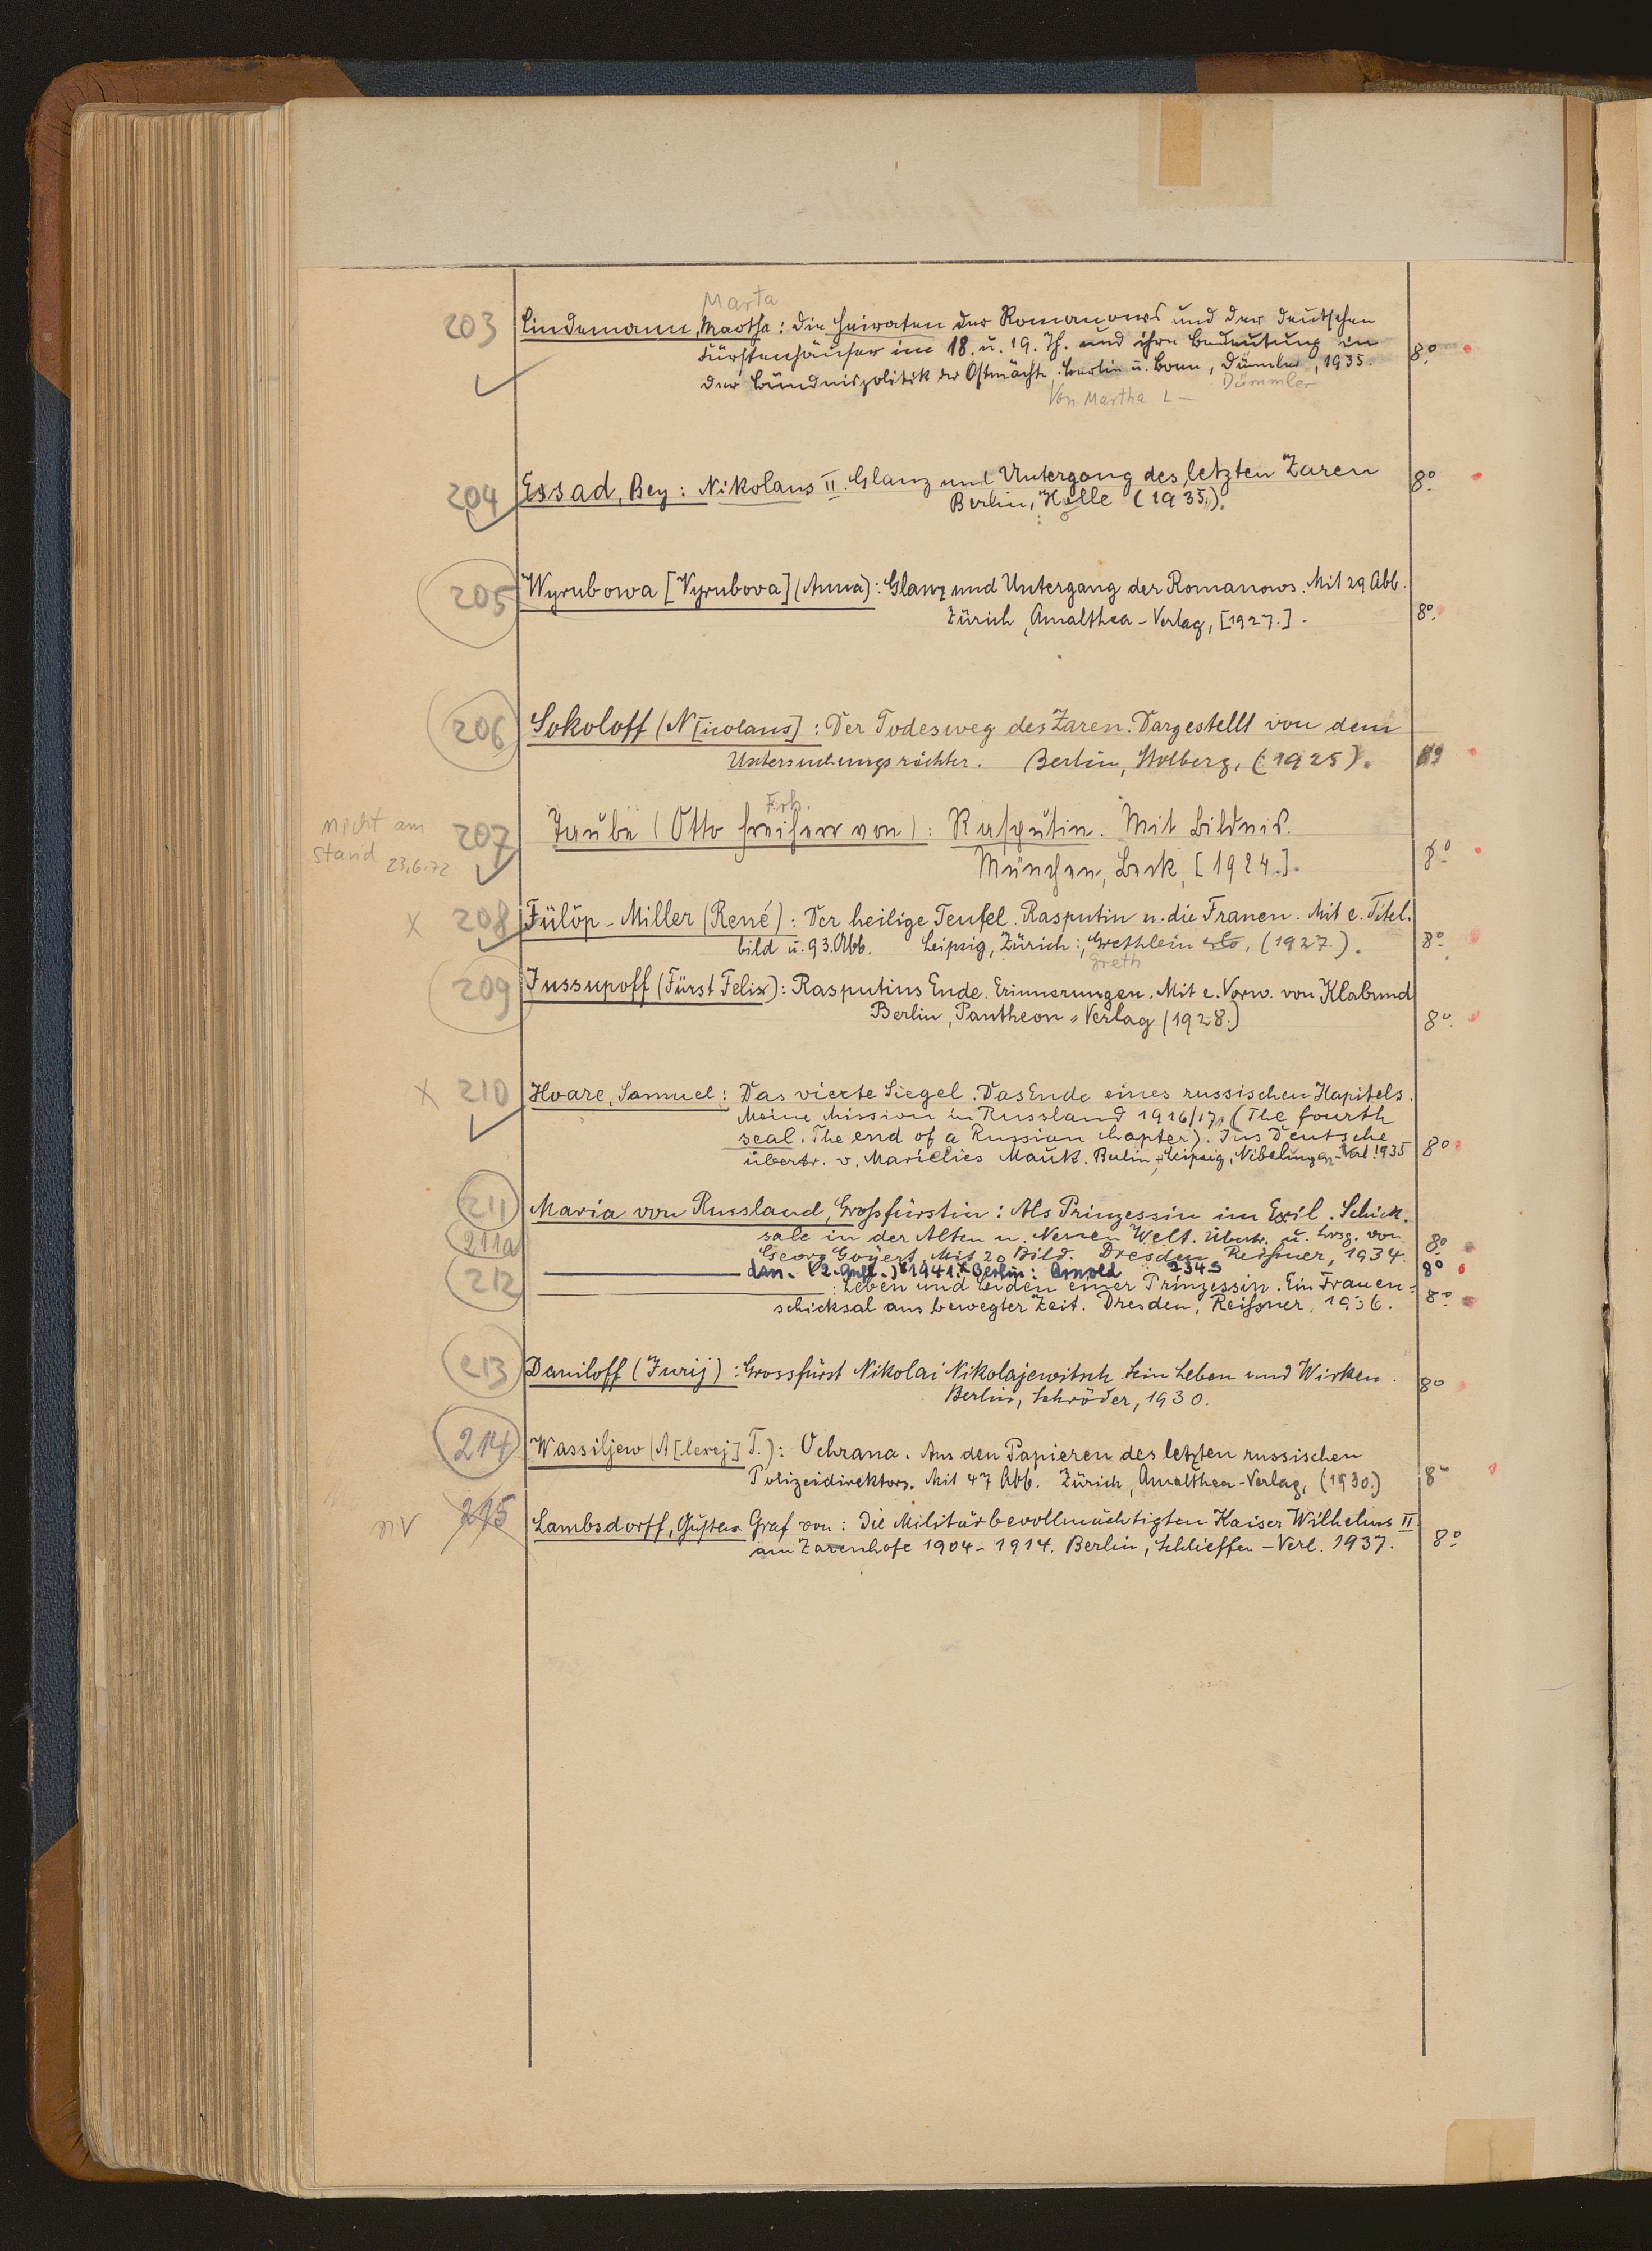 Marta
203 Lindemann, Martha: Die Heiraten der Romanows und der deutschen
Fürstenhäuser im 18. u. 19. Jh. und ihre Bedeutung in
der Bündnispolitik der Ostmächte. Berlin u. Bonn, Dümler, 1935. 8º
Von Martha L — Dümmler
204 Essad, Bey: Nikolaus II. Glanz und Untergang des letzten Zaren 8º
Berlin, Holle (1935).
205 Wyrubowa [Vyrubova] (Anna): Glanz und Untergang der Romanows. Mit 29 Abb.
Zürich, Amalthea-Verlag, [1927.] 8º
206 Sokoloff (N[icolaus]: Der Todesweg des Zaren. Dargestellt von dem
Untersuchungsrichter. Berlin, Stolberg, (1925).
Frh.
nicht am
stand 23.6.72
207 Taube (Otto Freiherr von): Rasputin. Mit Bildnis.
München, Beck, [1924.]. 8º
x 208 Fülöp-Miller (René): Der heilige Teufel. Rasputin u. die Frauen. Mit e. Titel-
bild u. 93. Abb. Leipzig, Zürich:, Grethlein, (1927.). 8º
Greth
209 Jussupoff (Fürst Felix): Rasputins Ende. Erinnerungen. Mit e. Vorw. von Klabund
Berlin, Pantheon-Verlag (1928.) 8º
x 210 Hoare, Samuel: Das vierte Siegel. Das Ende eines russischen Kapitels.
Meine Mission in Russland 1916/17. (The fourth
seal. The end of a Russian chapter). Ins Deutsche
übertr. v. Marielies Mauk. Berlin, Leipzig, Nibelungen-Verl. 1935 8º
211 Maria von Russland, Großfürstin: Als Prinzessin im Exil. Schick-
sale in der Alten u. Neuen Welt. Übertr. u. hrsg. von
Georg Goyert. Mit 20 Bild. Dresden, Reißner, 1934. 8º
211a — dass. (2. Aufl.) 1941 Berlin: Arnold 2345 8º
212 — : Leben und Leiden einer Prinzessin. Ein Frauen-
schicksal aus bewegter Zeit. Dresden, Reißner, 1936. 8º
213 Daniloff (Jurij): Grossfürst Nikolai Nikolajewitsch. Sein Leben und Wirken.
Berlin, Schröder, 1930. 8º
214 Wassiljew (A[lexej] T.): Ochrana. Aus den Papieren des letzten russischen
Polizeidirektors. Mit 47 Abb. Zürich, Amalthea-Verlag, (1930.) 8º
nv 215 Lambsdorff, Gustav Graf von: Die Militärbevollmächtigten Kaiser Wilhelms II.
am Zarenhofe 1904-1914. Berlin, Schlieffen-Verl. 1937. 8º